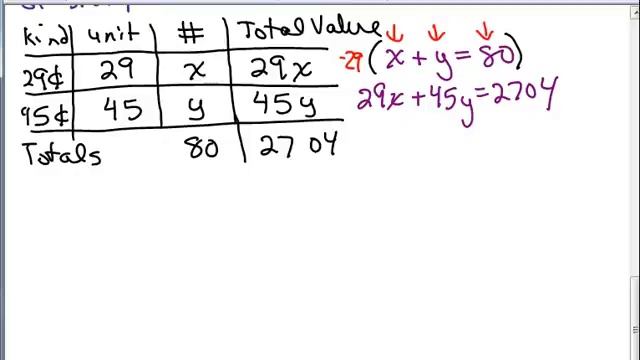 kind unit # Total Value
29¢ 29 x 29x
95¢ 45 y 45y
Totals 80 27 04
-29 (x + y = 80)
29x + 45y = 2704